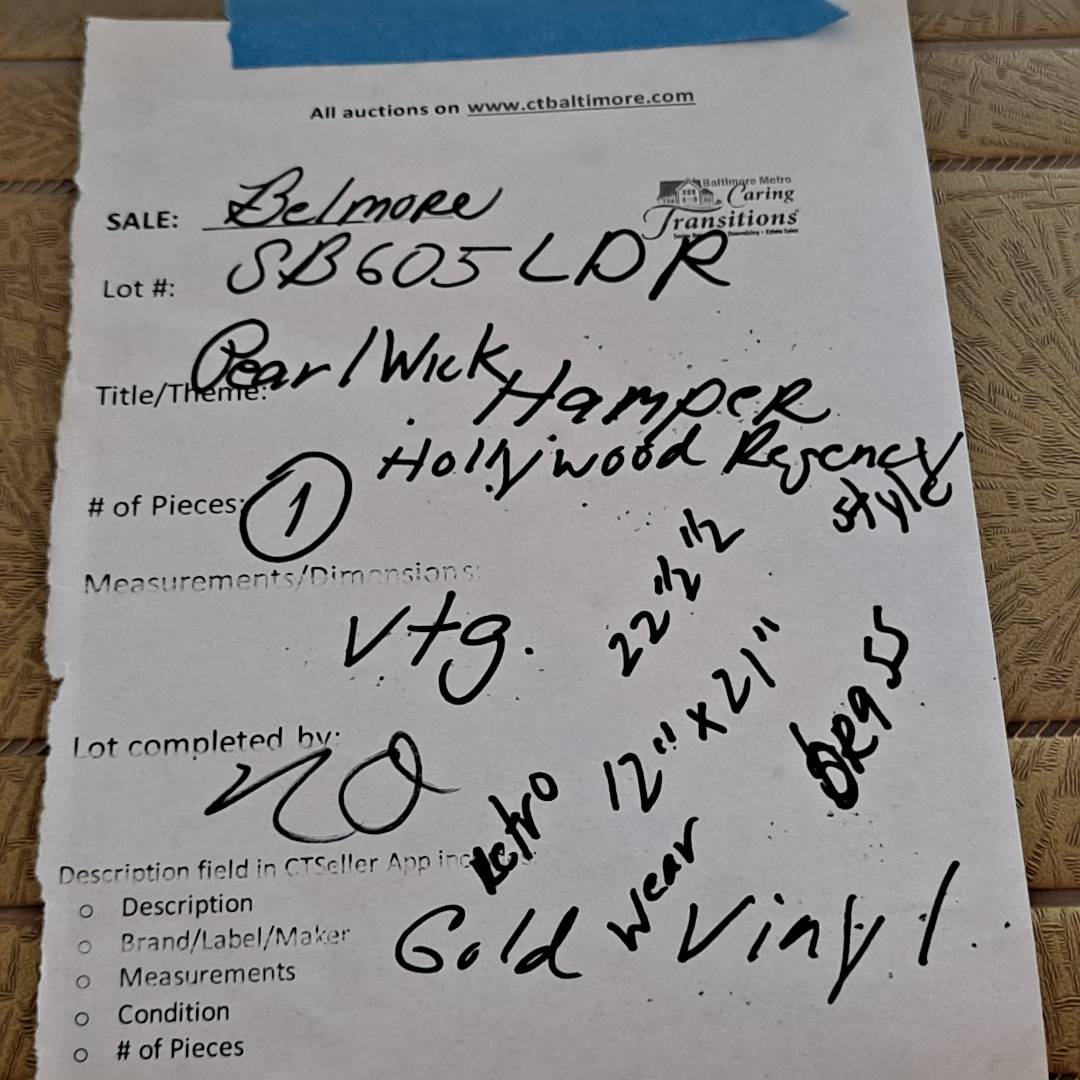 All auctions on www.ctbaltimore.com
Baltimore Metro
Caring
Transitions
SALE: Belmore
Lot #: SB605LDR
Title/Theme: Pearl Wick Hamper
Hollywood Regency
style
# of Pieces: 1
Measurements/Dimensions:
Vtg.
22 1/2 1/2
12" x 21"
brass
Lot completed by:
Retro
wear
Gold Vinyl.
Description field in CTSeller App
Description
Brand/Label/Maker
Measurements
Condition
# of Pieces